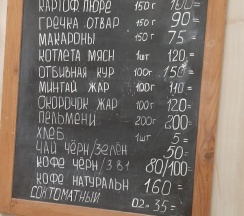 КАРТОФ. ПЮРЕ 150г 100=
ГРЕЧКА ОТВАР 150г 90=
МАКАРОНЫ 150г 75=
КОТЛЕТА МЯСН 1шт 120=
ОТБИВНАЯ КУР 100г 150=
МИНТАЙ ЖАР 100г 110=
ОКОРОЧОК ЖАР 100г 120=
ПЕЛЬМЕНИ 200г 200=
ХЛЕБ 1шт 5=
ЧАЙ ЧЁРН/ЗЕЛЁН 50=
КОФЕ ЧЁРН/3 В 1 80/100=
КОФЕ НАТУРАЛЬН 160=
СОК ТОМАТНЫЙ 0.2л 35=